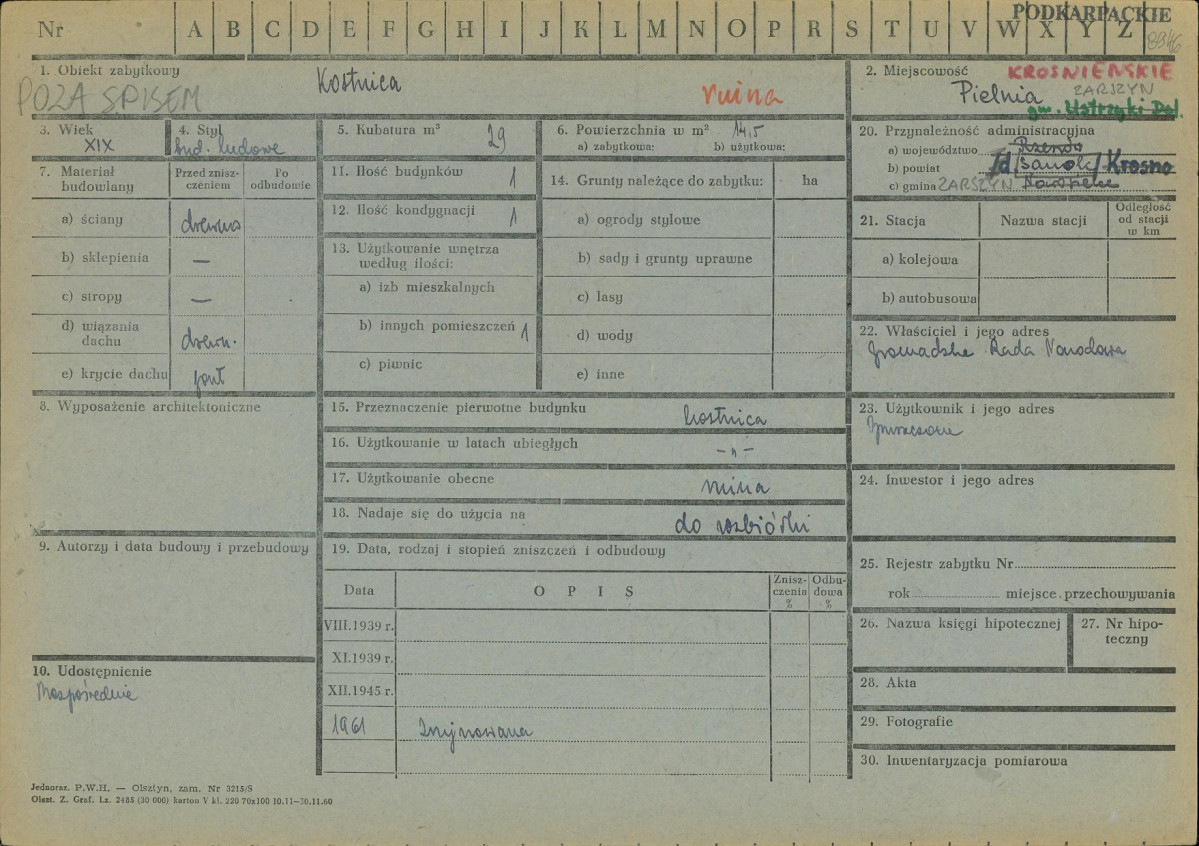 Nr A B C D E F G H I J K L M N O P R S T U V W X Y Z
PODKARPACKIE
8946
1. Obiekt zabytkowy
Kostnica
ruina
POZA SPISEM
2. Miejscowość
KROŚNIEŃSKIE
Pielnia
ZARSZYN
gm. Ustrzyki Dol.
3. Wiek
XIX
4. Styl
bud. ludowe
5. Kubatura m³
29
6. Powierzchnia w m² 14,5
a) zabytkowa: b) użytkowa:
20. Przynależność administracyjna
a) województwo Rzeszów
b) powiat Sanok Krosno
c) gmina ZARSZYN
7. Materiał budowlany
Przed znisz-
czeniem
Po
odbudowie
a) ściany drewno
b) sklepienia —
c) stropy —
d) wiązania
dachu drewn.
e) krycie dachu gont
11. Ilość budynków 1
12. Ilość kondygnacji 1
13. Użytkowanie wnętrza
według ilości:
a) izb mieszkalnych
b) innych pomieszczeń 1
c) piwnic
14. Grunty należące do zabytku: ha
a) ogrody stylowe
b) sady i grunty uprawne
c) lasy
d) wody
e) inne
21. Stacja
Nazwa stacji
Odległość
od stacji
w km
a) kolejowa
b) autobusowa
22. Właściciel i jego adres
Gromadzka Rada Narodowa
8. Wyposażenie architektoniczne
15. Przeznaczenie pierwotne budynku kostnica
16. Użytkowanie w latach ubiegłych -"-
17. Użytkowanie obecne ruina
18. Nadaje się do użycia na do rozbiórki
23. Użytkownik i jego adres
24. Inwestor i jego adres
9. Autorzy i data budowy i przebudowy
19. Data, rodzaj i stopień zniszczeń i odbudowy
Data
OPIS
Znisz-
czenia
%
Odbu-
dowa
%
VIII.1939 r.
XI.1939 r.
XII.1945 r.
1961 Zrujnowana
25. Rejestr zabytku Nr
rok miejsce przechowywania
26. Nazwa księgi hipotecznej
27. Nr hipo-
teczny
10. Udostępnienie
Bezpośrednie
28. Akta
29. Fotografie
30. Inwentaryzacja pomiarowa
Jednoraz. P.W.H. — Olsztyn, zam. Nr 3215/S
Olszt. Z. Graf. Lz. 2485 (30 000) karton V kl. 220 70x100 10.11—30.11.60